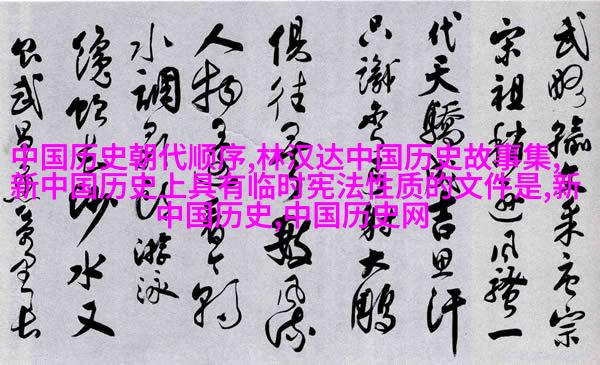 中国历史朝代顺序,林汉达中国历史故事集,
新中国历史上具有临时宪法性质的文件是,新
中国历史,中国历史网
武略输文采唐宗
宋祖稍逊风骚一
代天骄成吉思汗
只識弯弓射大鵰
俱往矣数风流
人物还看今朝
水调歌头 游泳
水又